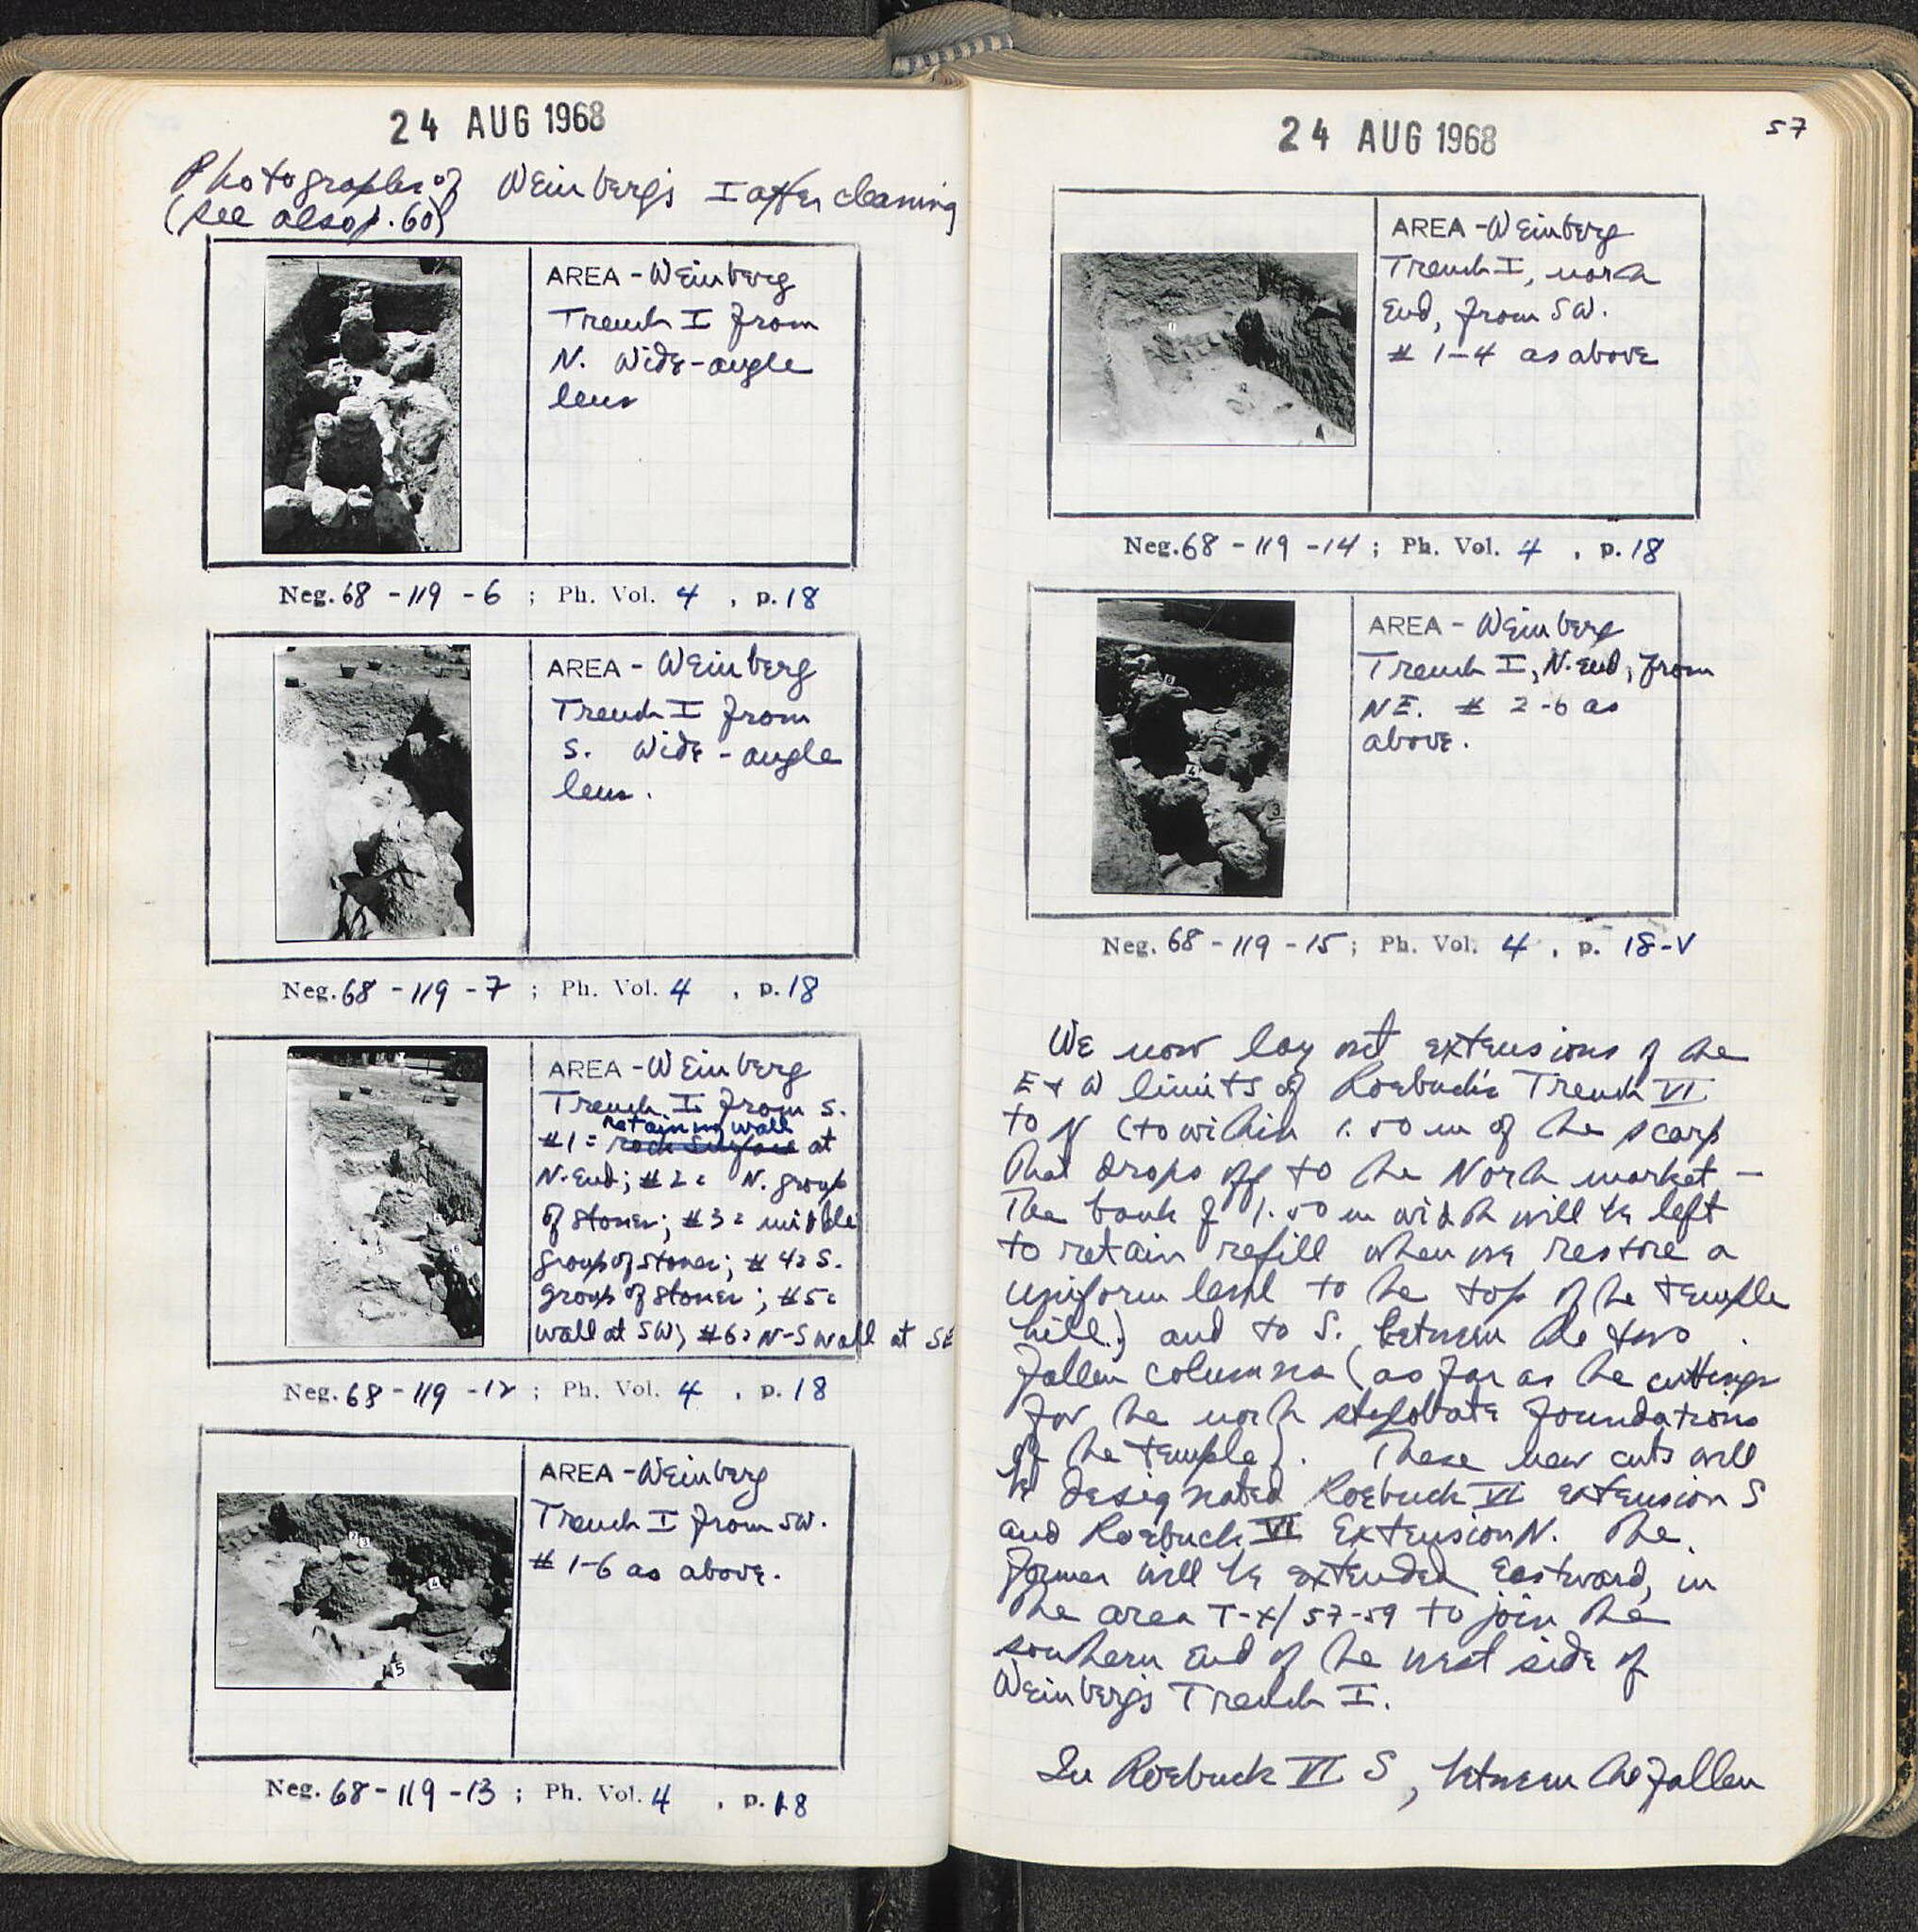 24 AUG 1968
Photographs of Weinberg's I after cleaning
(see also p. 60)
AREA - Weinberg
Trench I from
N. Wide-angle
lens
Neg. 68 - 119 - 6 ; Ph. Vol. 4 , p. 18
AREA - Weinberg
Trench I from
S. Wide-angle
lens.
Neg. 68 - 119 - 7 ; Ph. Vol. 4 , p. 18
AREA - Weinberg
Trench I from S.
retaining wall
#1 = rock surface at
N. End; #2 = N. group
of stones; #3 = middle
group of stones; #4 = S.
group of stones; #5 =
wall at SW; #6 = N-S wall at SE
Neg. 68 - 119 - 12 ; Ph. Vol. 4 , p. 18
AREA - Weinberg
Trench I from SW.
# 1-6 as above.
2
3
4
5
Neg. 68 - 119 - 13 ; Ph. Vol. 4 , p. 18
24 AUG 1968
57
AREA - Weinberg
Trench I, north
End, from SW.
# 1-4 as above
Neg. 68 - 119 - 14 ; Ph. Vol. 4 , p. 18
AREA - Weinberg
Trench I, N. End, from
NE. # 2-6 as
above.
4
3
Neg. 68 - 119 - 15 ; Ph. Vol. 4 , p. 18-V
We now lay out extensions of the
E + W limits of Roebuck's Trench VI
to N (to within 1.50 m of the scarp
that drops off to the North market -
The bank of 1.50 m width will be left
to retain refill when we restore a
uniform level to the top of the temple
hill) and to S. between the two
fallen columns (as far as the cuttings
for the north stylobate foundations
of the temple). These new cuts will
be designated Roebuck VI extension S
and Roebuck VI Extension N. The
former will be extended eastward, in
the area T-X/57-59 to join the
southern end of the west side of
Weinberg's Trench I.
In Roebuck VI S, between the fallen